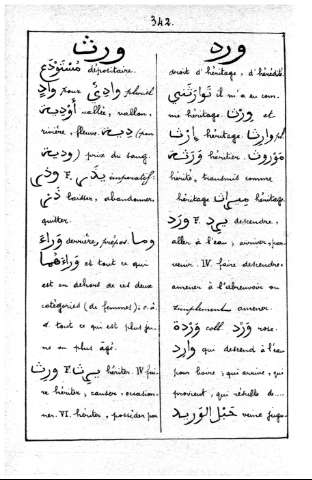 342.
ورث
مُسْتَوْدَع dépositaire.
وَادٍ pour وَادِيٌ pluriel
أَوْدِيَة vallée, vallon,
rivière, fleuve. دِيَة (pour
وِدْيَة) prix du sang.
impératif
laisser, abandonner,
quitter.
وَرَآءَ derrière, prépos. وما
وَرَآءَهُمَا et tout ce qui
est en dehors de ces deux
catégories (de femmes); c.à.
d. tout ce qui est plus jeu-
ne ou plus âgé.
وَرِثَ F. يَرِثُ hériter. IV fai-
re hériter, causer, occasion-
ner. VI. hériter, posséder par
ورد
droit d'héritage, d'hérédité.
il m'a eu com-
me héritage. وِرْث et
إِرْث héritage. وَارِث pl.
وَرَثَة héritier. مَوْرُوث
hérité, transmis comme
héritage. مِيرَاث héritage
وَرَدَ F. يَرِدُ descendre,
aller à l'eau; arriver, par-
venir. IV. faire descendre,
amener à l'abreuvoir ou
simplement amener.
وَرْدَة coll. وَرْد rose.
وَارِد qui descend à l'eau
pour boire; qui arrive, qui
provient, qui résulte de...
حَبْل الوَرِيد veine jugu-